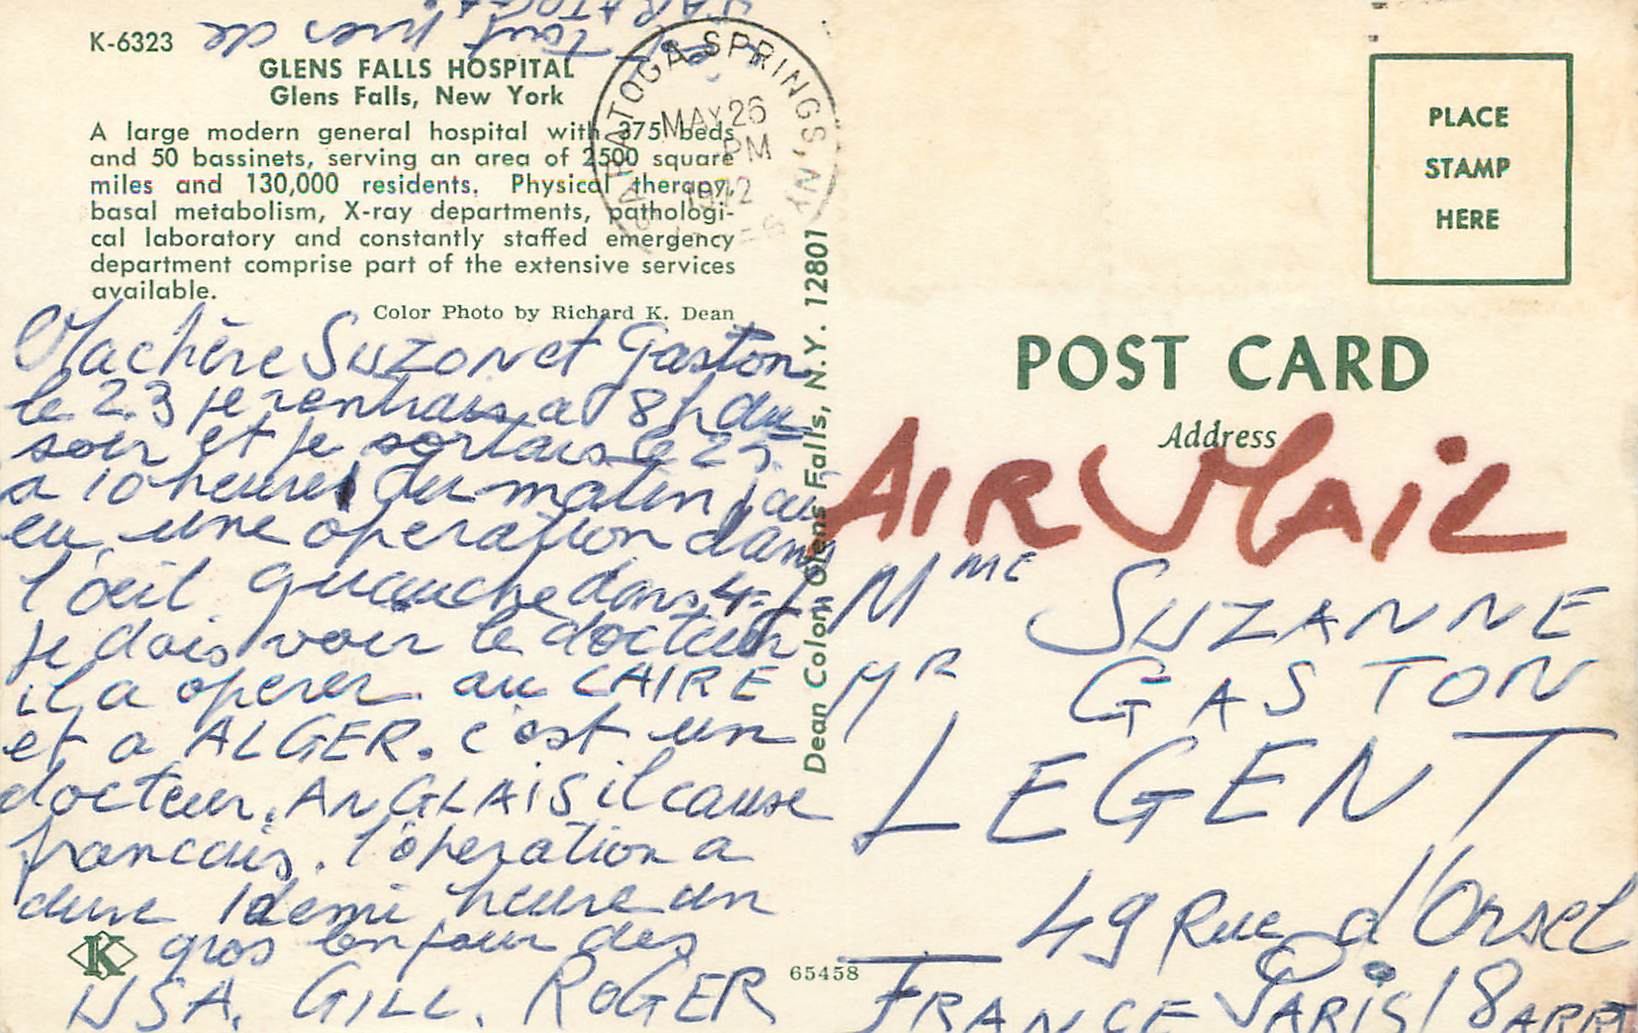 K-6323
GLENS FALLS HOSPITAL
Glens Falls, New York
A large modern general hospital with 375 beds
and 50 bassinets, serving an area of 2500 square
miles and 130,000 residents. Physical therapy,
basal metabolism, X-ray departments, pathologi-
cal laboratory and constantly staffed emergency
department comprise part of the extensive services
available.
Color Photo by Richard K. Dean
tout pres de
SARATOGA
SARATOGA SPRINGS, NY
MAY 26
PM
1972
Ma chère SUZON et Gaston
le 23 je rentrais a 8h du
soir et je sortais le 25
a 10 heures du matin j'ai
eu une operation dans
l'oeil guauche dans 4 j
je dois voir le docteur
il a operer au CAIRE
et a ALGER. c'est un
docteur. ANGLAIS il cause
francais. l'operation a
dure 1 demi heure un
gros bonjour des
USA. GILL. ROGER
K
Dean Color, Glens Falls, N.Y. 12801
65458
PLACE
STAMP
HERE
POST CARD
Address
AIR MAIL
Mme SUZANNE
MR GASTON
LEGENT
49 Rue d'Orsel
FRANCE PARIS 18 ARRT